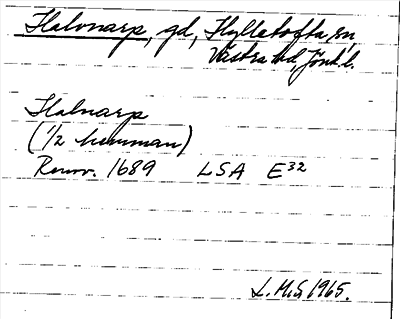 Halvnarp, gd, Hylletofta sn
Västra hd, Jönk. l.
Halnarp
(1/2 hemman)
Renov. 1689 LSA E32
L. M.G 1965.